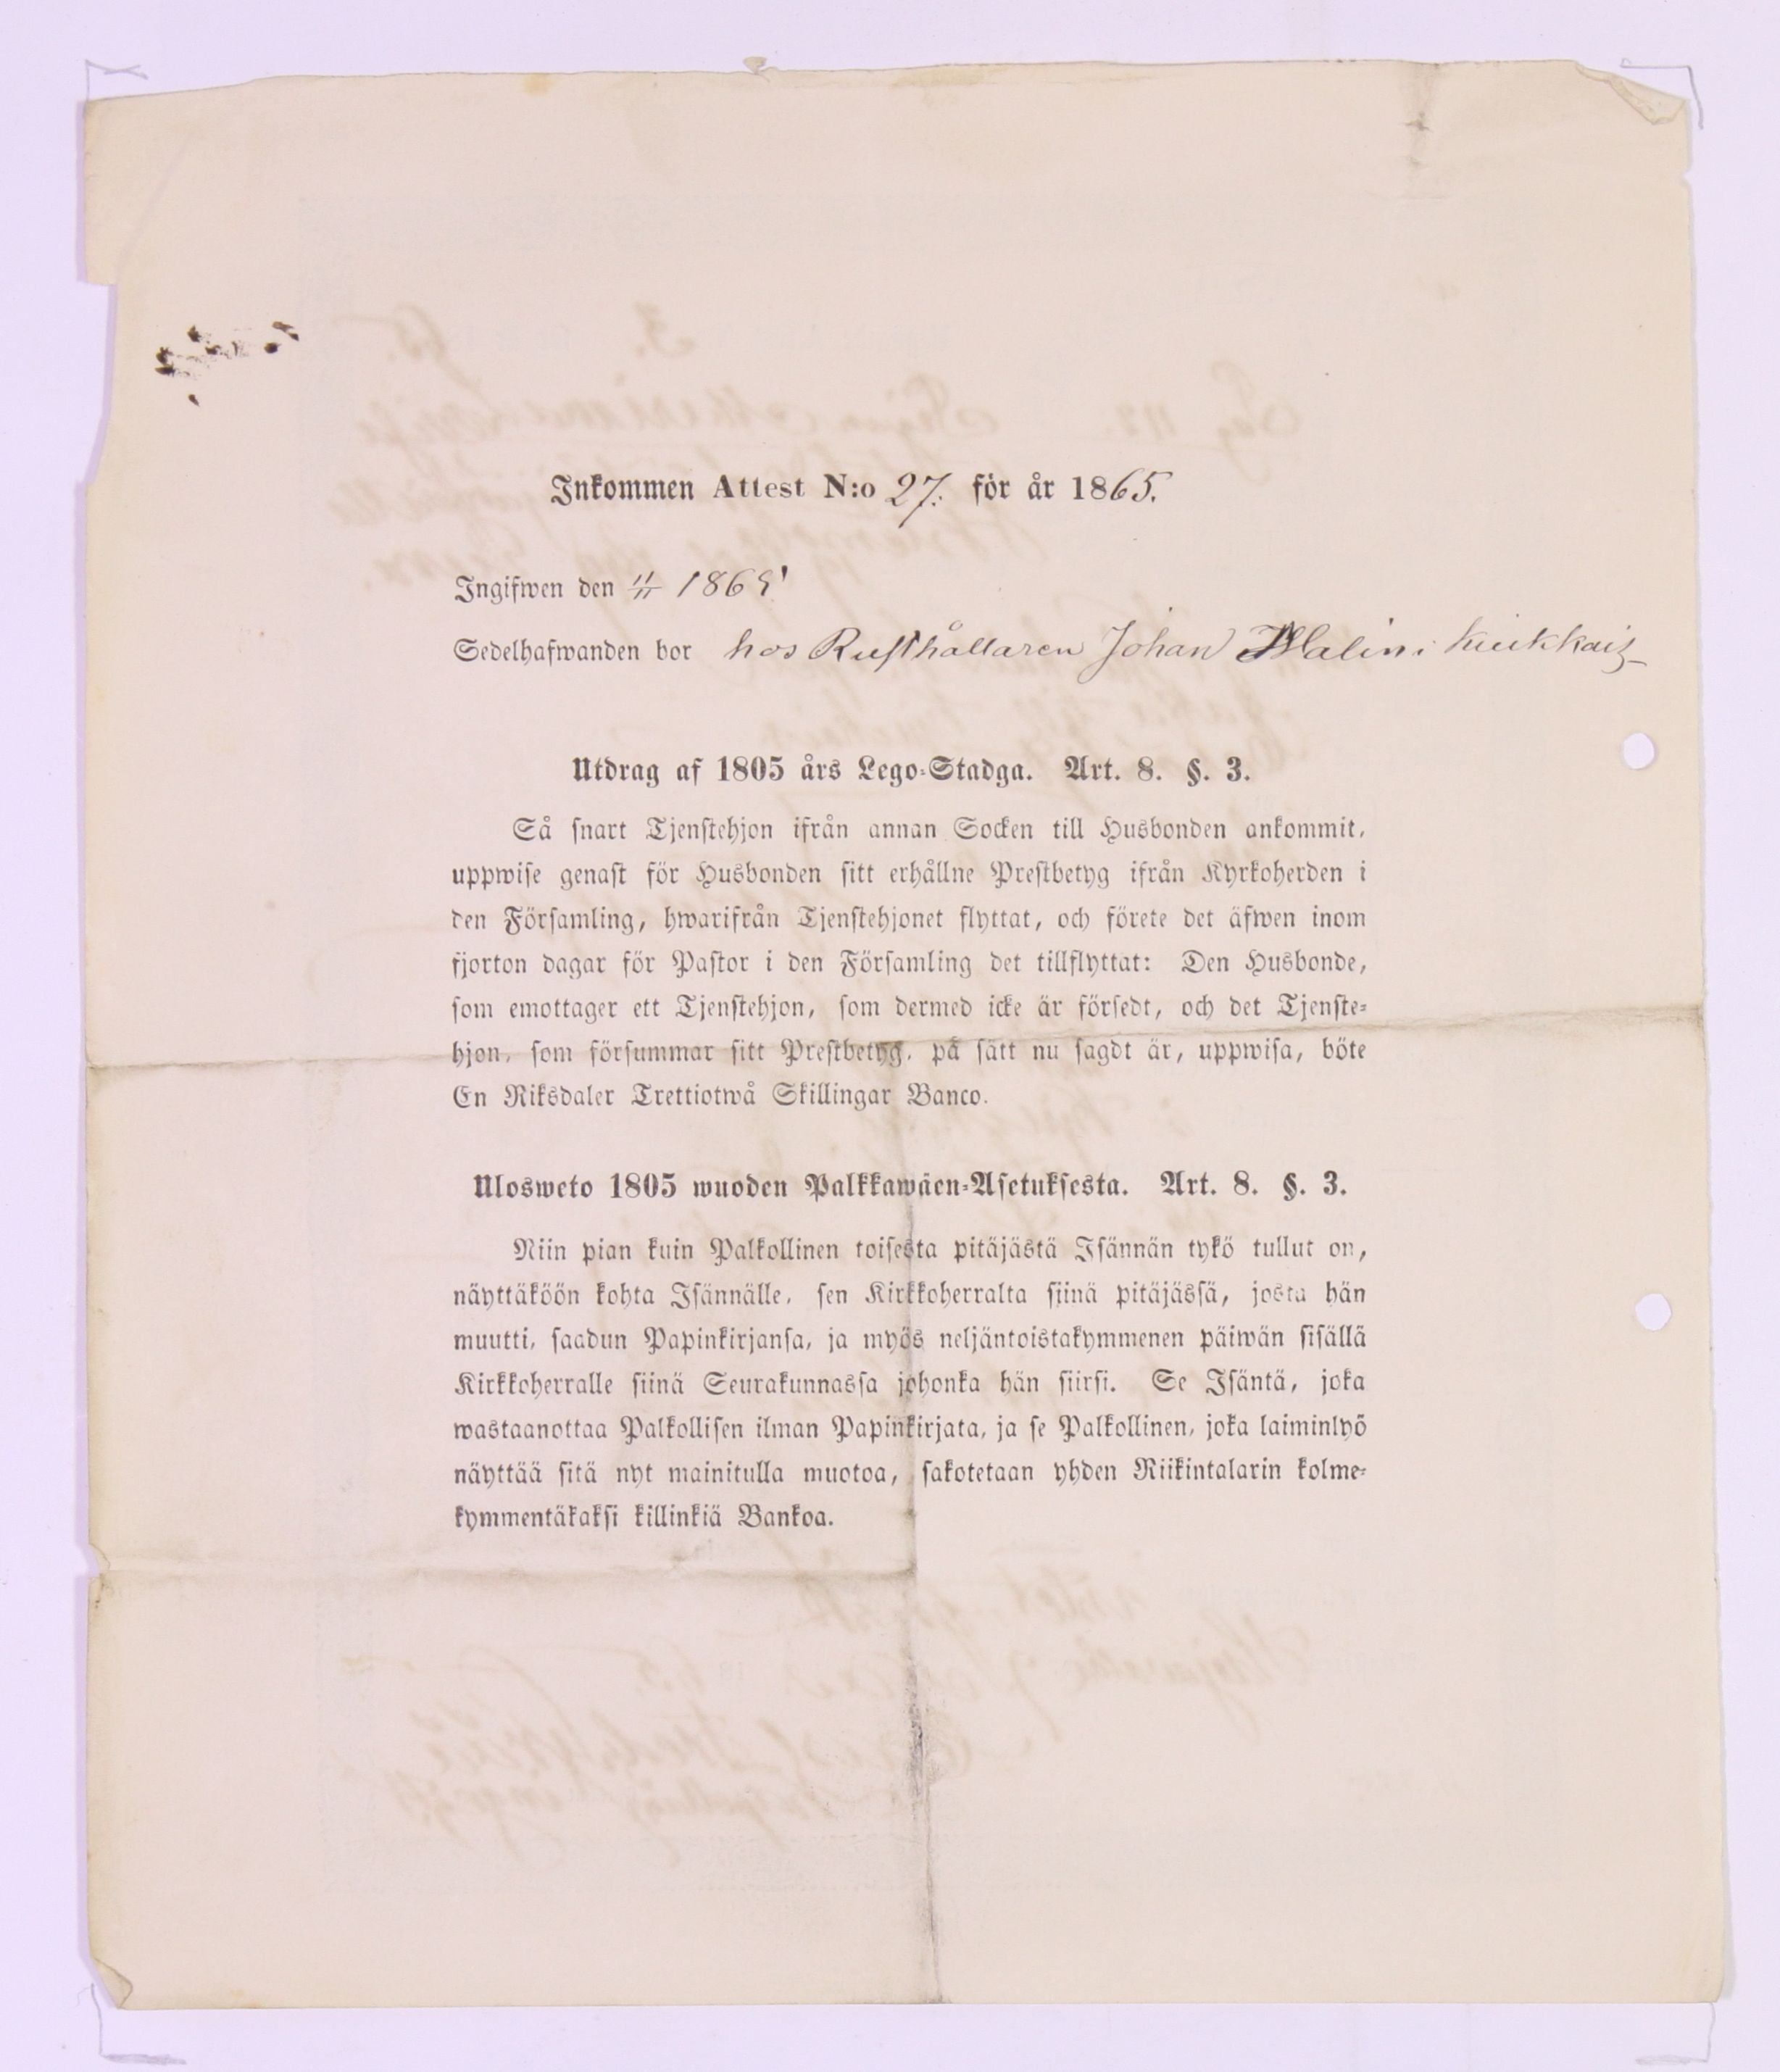 Inkommen Attest N:o 27. för år 1865.
Ingifwen den 11/11 1865
Sedelhafwanden bor hos Rusthållaren Johan Malin i Kiukkais
Utdrag af 1805 års Lego-Stadga. Art. 8. §. 3.
Så snart Tjenstehjon ifrån annan Socken till Husbonden ankommit,
uppwise genast för Husbonden sitt erhållne Prestbetyg ifrån Kyrkoherden i
den Församling, hwarifrån Tjenstehjonet flyttat, och förete det äfwen inom
fjorton dagar för Pastor i den Församling det tillflyttat: Den Husbonde,
som emottager ett Tjenstehjon, som dermed icke är försedt, och det Tjenste-
hjon, som försummar sitt Prestbetyg, på sätt nu sagdt är, uppwisa, böte
En Riksdaler Trettiotwå Skillingar Banco.
Ulosweto 1805 wuoden Palkkawäen-Asetuksesta. Art. 8. §. 3.
Niin pian kuin Palkollinen toisesta pitäjästä Isännän tykö tullut on,
näyttäköön kohta Isännälle, sen Kirkkoherralta siinä pitäjässä, josta hän
muutti, saadun Papinkirjansa, ja myös neljäntoistakymmenen päiwän sisällä
Kirkkoherralle siinä Seurakunnassa johonka hän siirsi. Se Isäntä, joka
wastaanottaa Palkollisen ilman Papinkirjata, ja se Palkollinen, joka laiminlyö
näyttää sitä nyt mainitulla muotoa, sakotetaan yhden Riikintalarin kolme-
kymmentäkaksi killinkiä Bankoa.